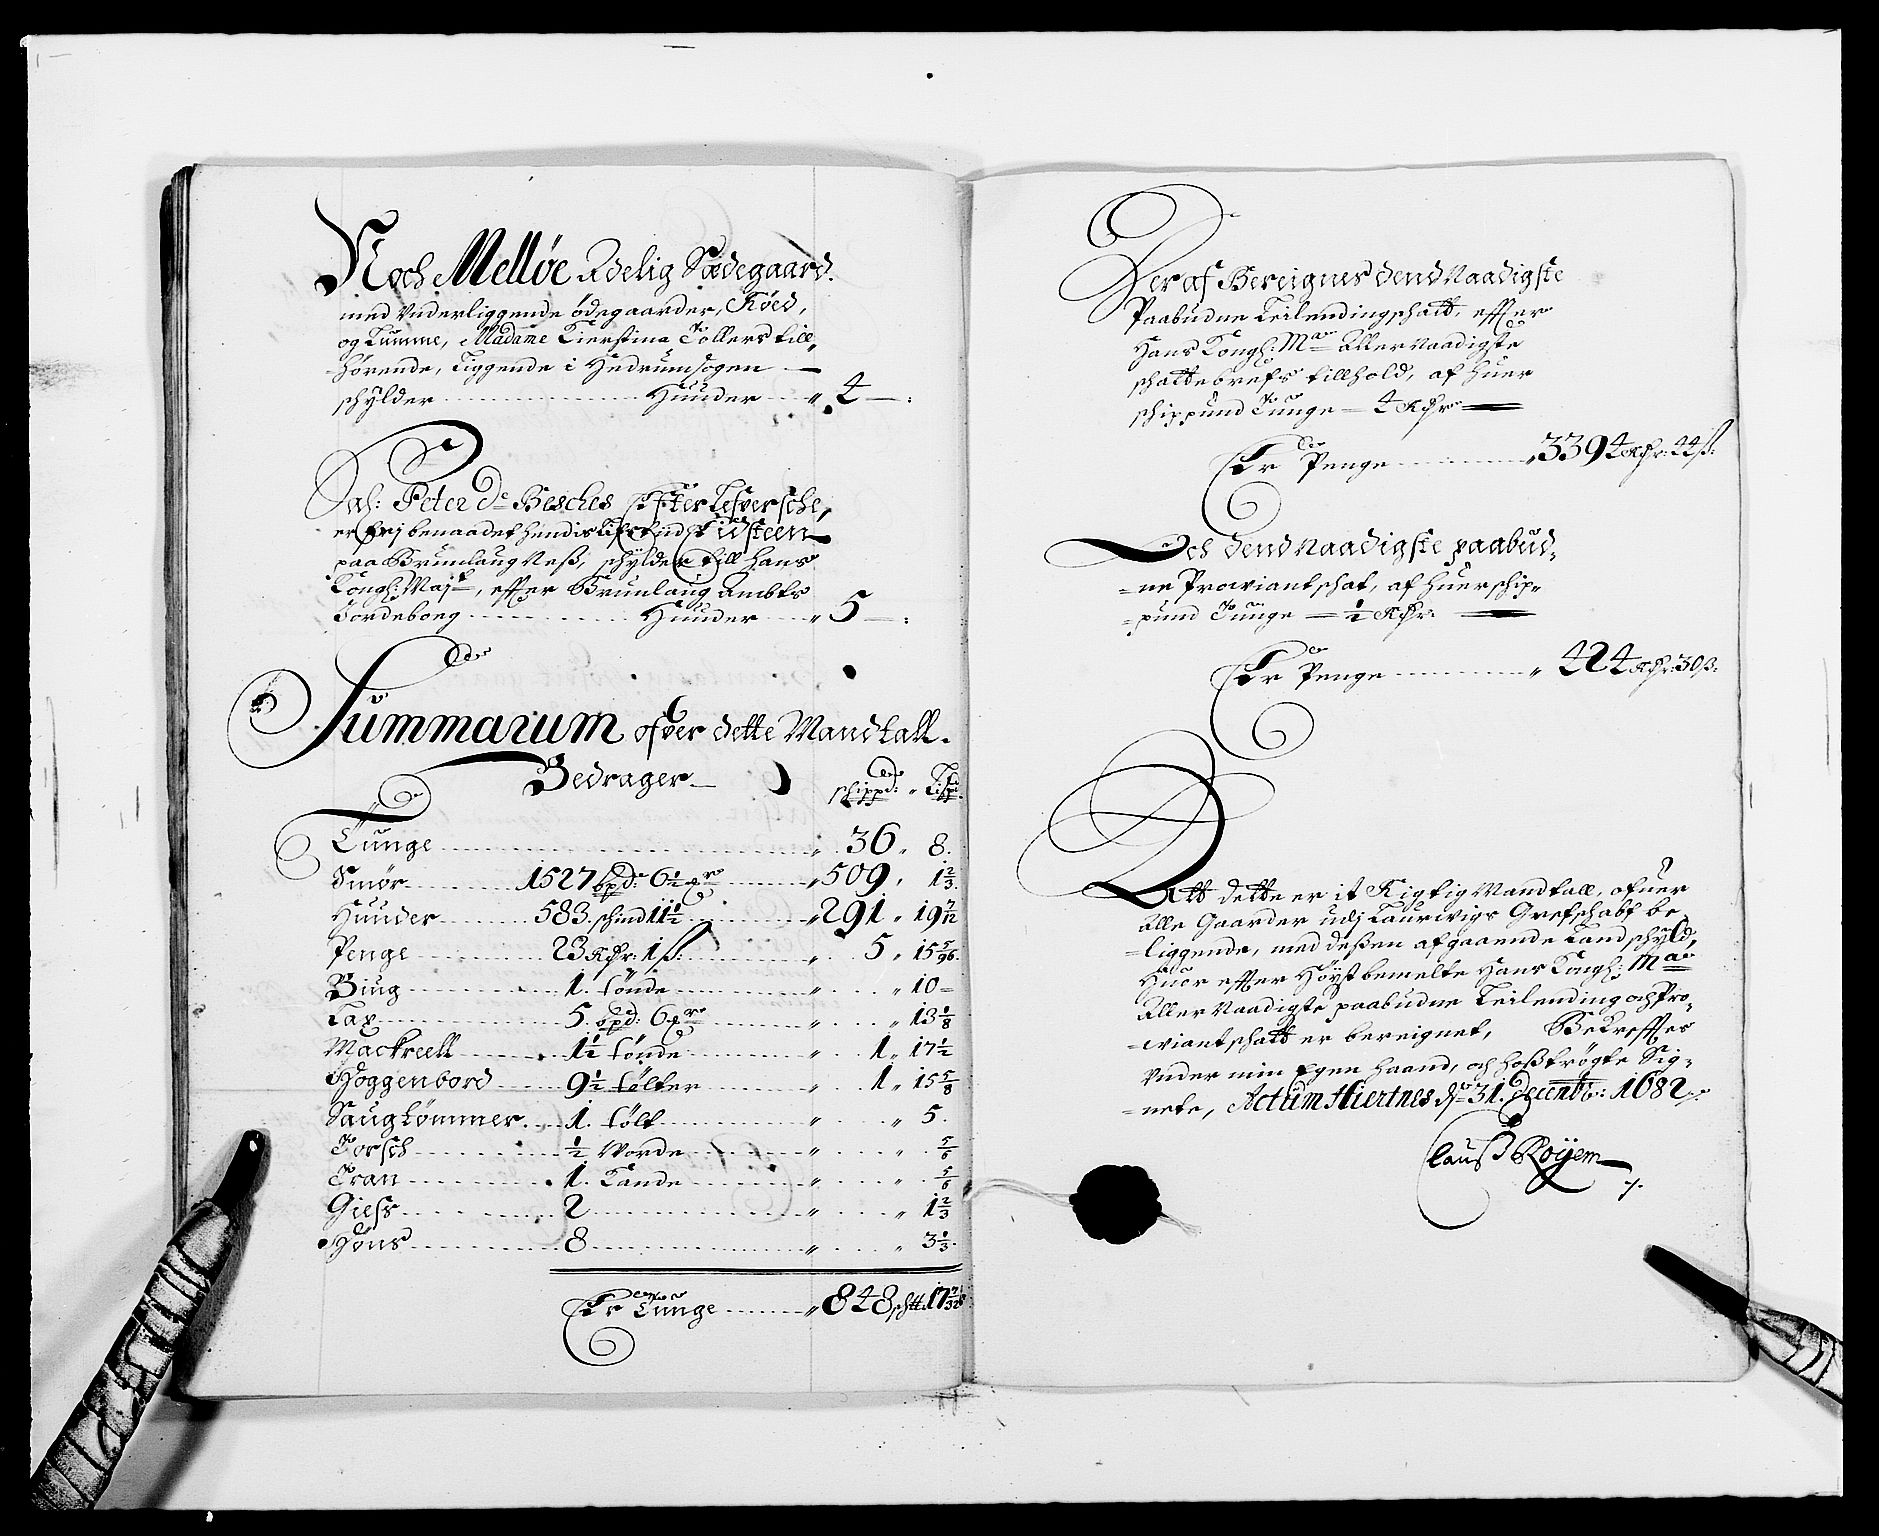 Noch Melløe Adelig Sædegaard.
med Underliggende ødegaarder, Røed,
og Lumme, Madame Kierstina Tollers till,
hørende, Liggende i Hedrum sogen —
schylder ........ Huuder .... „ 4 — :
Sahl: Peter De Besches Efter Lefversche,
er frj benaadet hendis Lifs tid, Tidsteen
paa Brunlaug Neß, schylder till hans
Kongl: Mayt, effter Brunlaug Ambts
Jordebong ........ Huuder .... „ 5 — :
Summarum ofver dette Mandtall.
Bedrager — schippd: „ Lispd:
Tunge ........ „ 36 „ 8.
Smør ........ 1527 bpd: 6½ mrk ........ „ 509 „ 1⅔.
Huuder ........ 583. schind 11½ ........ „ 291 „ 19 7/12
Penge ........ 23 Rdr: 1 ß: ........ „ 5 „ 15 5/96.
Biug ........ 1. tönde ........ „ .... „ 10 —
Lax ........ 5. bpd: 6 mrk ........ „ .... „ 13⅛
Mackreell ........ 1½ tönde ........ „ 1 „ 17½
Hoggenbord ........ 9½ tölter ........ „ 1 „ 15⅝
Saugtömmer .... 1. tölt ........ „ .... „ 5.
Torsch ........ ½ Vorde ........ „ .... „ 5/6
Tran ........ 1. Kande ........ „ .... „ 5/6
Giess ........ 2 ........ „ .... „ 1⅔
Höns ........ 8 ........ „ .... „ 3⅓.
Er Tunge ........ „ 848 schtt: 17
Der af Bereignes dend Naadigste
Paabudne Leilendingschatt, effter
Hans Kongl: Mas Aller Naadigste
schattebrefs tillhold, af huer
schippund Tunge — 4 Rdr —
Er Penge ........ „ 3394 Rdr: 44 ß:
Och dend Naadigste paabud„
„ne Proviantschat, af huer schip„
„pund Tunge — ½ Rdr: —
Er Penge ........ „ 424 Rdr: 30 ß:
Att dette er it Rigtig Mandtall, ofuer
alle Gaarder udj Laurwigs Grefschabt be
„liggende, med deßen afgaaende Landschyld,
Huor effter Høyst bemelte Hans Kongl: Mas
Aller Naadigste paabudne Leilending och Pro„
„wiantschatt er bereignet, Bekreffter
Under min Egen haand, och hoßtrögte Sig„
„nete, Actum Hiertnes ds 31. Decemb: 1682.
Clauß Røyem